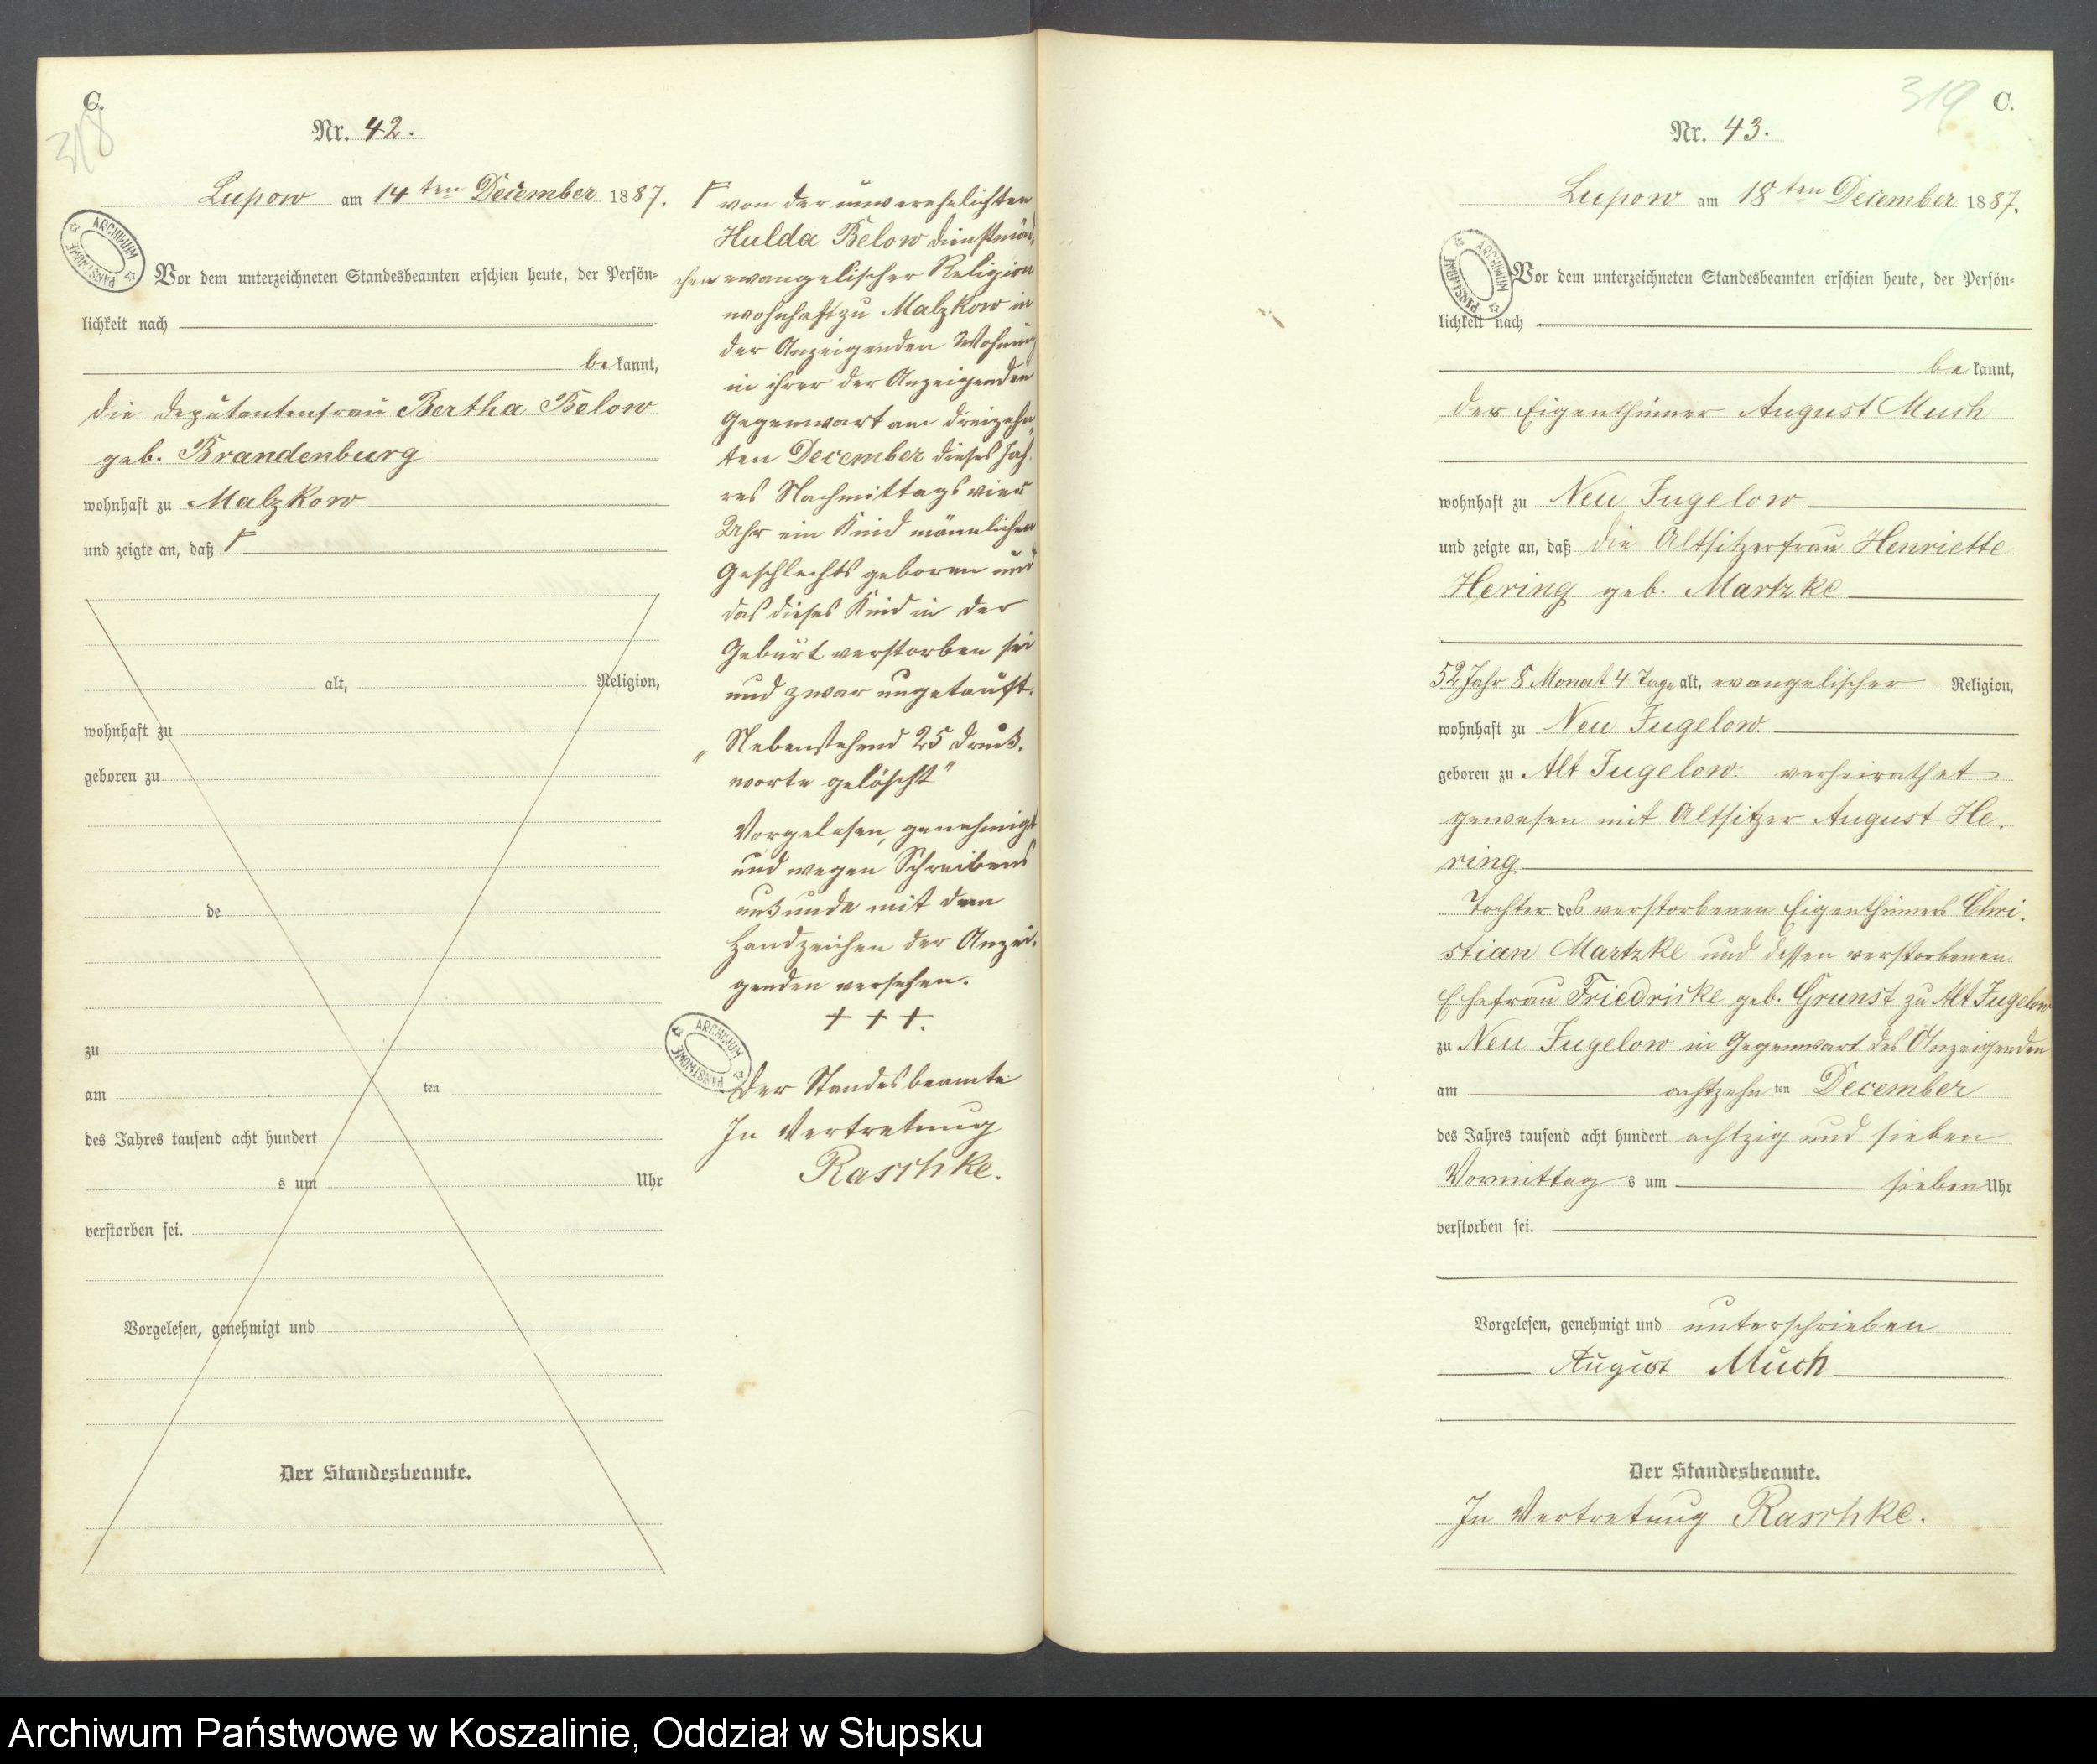 C.
318
Nr. 42.
Lupow am 14ten December 1887.
ARCHIWUM PAŃSTWOWE
Vor dem unterzeichneten Standesbeamten erschien heute, der Persön-
lichkeit nach
bekannt,
die Deputantenfrau Bertha Below
geb. Brandenburg
wohnhaft zu Malzkow
und zeigte an, daß Γ
alt, Religion,
wohnhaft zu
geboren zu
de
zu
am ten
des Jahres tausend acht hundert
s um Uhr
verstorben sei.
Vorgelesen, genehmigt und
Der Standesbeamte.
Γ von der unverehelichten
Hulda Below Dienstmäd,
chen evangelischer Religion
wohnhaft zu Malzkow in
der Anzeigenden Wohnung
in ihrer der Anzeigenden
Gegenwart am dreizehn,
ten December dieses Jah,
res Nachmittags vier
Uhr ein Kind männlichen
Geschlechts geboren und
das dieses Kind in der
Geburt verstorben sei
und zwar ungetauft.
„Nebenstehend 25 Druck.
worte gelöscht"
Vorgelesen, genehmigt
und wegen Schreibens
unkunde mit dem
Handzeichen der Anzei,
genden versehen.
+ + +.
ARCHIWUM PAŃSTWOWE
Der Standesbeamte
In Vertretung
Raschke.
319 C.
Nr. 43.
Lupow am 18ten December 1887.
ARCHIWUM PAŃSTWOWE
Vor dem unterzeichneten Standesbeamten erschien heute, der Persön-
lichkeit nach
bekannt,
der Eigenthümer August Much
wohnhaft zu Neu Jugelow
und zeigte an, daß die Altsitzerfrau Henriette
Hering geb. Martzke
52 Jahr 8 Monat 4 Tage alt, evangelischer Religion,
wohnhaft zu Neu Jugelow.
geboren zu Alt Jugelow. verheirathet
gewesen mit Altsitzer August He,
ring
Tochter des verstorbenen Eigenthümers Chri,
stian Martzke und dessen verstorbenen
Ehefrau Friedricke geb. Grunst zu Alt Jugelow
zu Neu Jugelow in Gegenwart des Anzeigenden
am achtzehnten December
des Jahres tausend acht hundert achtzig und sieben
Vormittags um sieben Uhr
verstorben sei.
Vorgelesen, genehmigt und unterschrieben
August Much
Der Standesbeamte.
In Vertretung Raschke.
Archiwum Państwowe w Koszalinie, Oddział w Słupsku